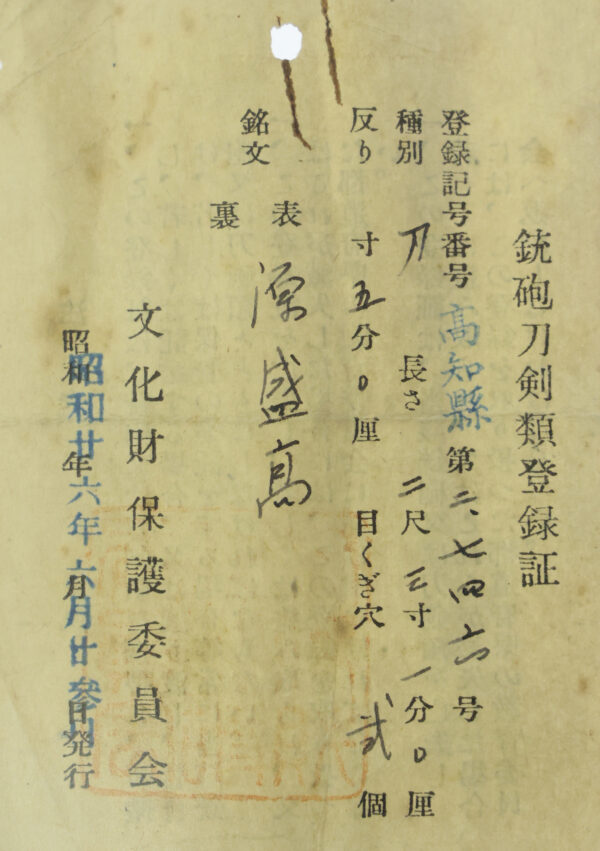 銃砲刀剣類登録証
登録記号番号 高知縣 第二、七四六号
種別 刀 長さ 二尺三寸一分〇厘
反り 寸五分〇厘 目くぎ穴 弐個
銘文 表 源盛高
裏
文化財保護委員会
昭和 年 月 日発行
昭和廿六年六月廿参日